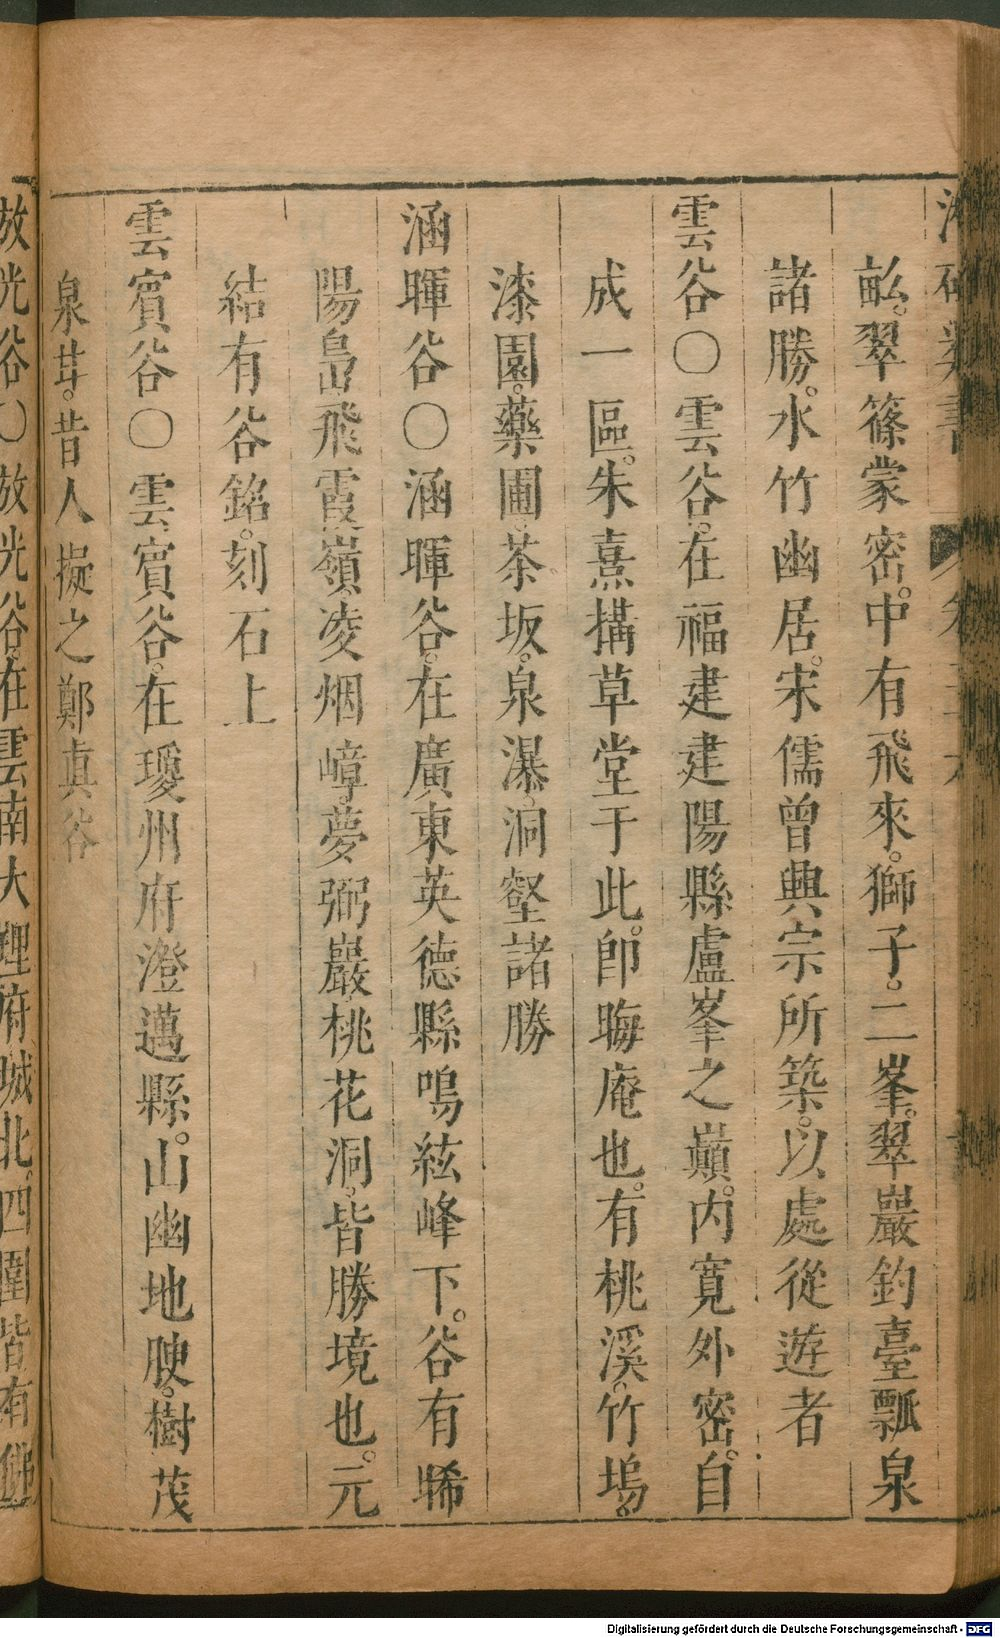 畝。翠篠蒙密。中有飛來。獅子。二峯。翠巖釣臺瓢泉
諸勝。水竹幽居。宋儒曾興宗所築。以處從遊者
雲谷〇雲谷。在福建建陽縣盧峯之巔。内寛外密。自
成一區。朱熹搆草堂于此。即晦庵也。有桃溪。竹塢。
漆園。藥圃。茶坂。泉瀑。洞壑諸勝
涵暉谷〇涵暉谷。在廣東英德縣鳴絃峰下。谷有晞
陽島。飛霞嶺。凌烟嶂。夢弼巖。桃花洞。皆勝境也。元
結有谷銘。刻石上
雲賓谷〇雲賓谷。在瓊州府澄邁縣。山幽地腴。樹茂
泉甘。昔人擬之鄭真谷
放光谷〇放光谷。在雲南大理府城北。四圍皆有佛
Digitalisierung gefördert durch die Deutsche Forschungsgemeinschaft - DFG